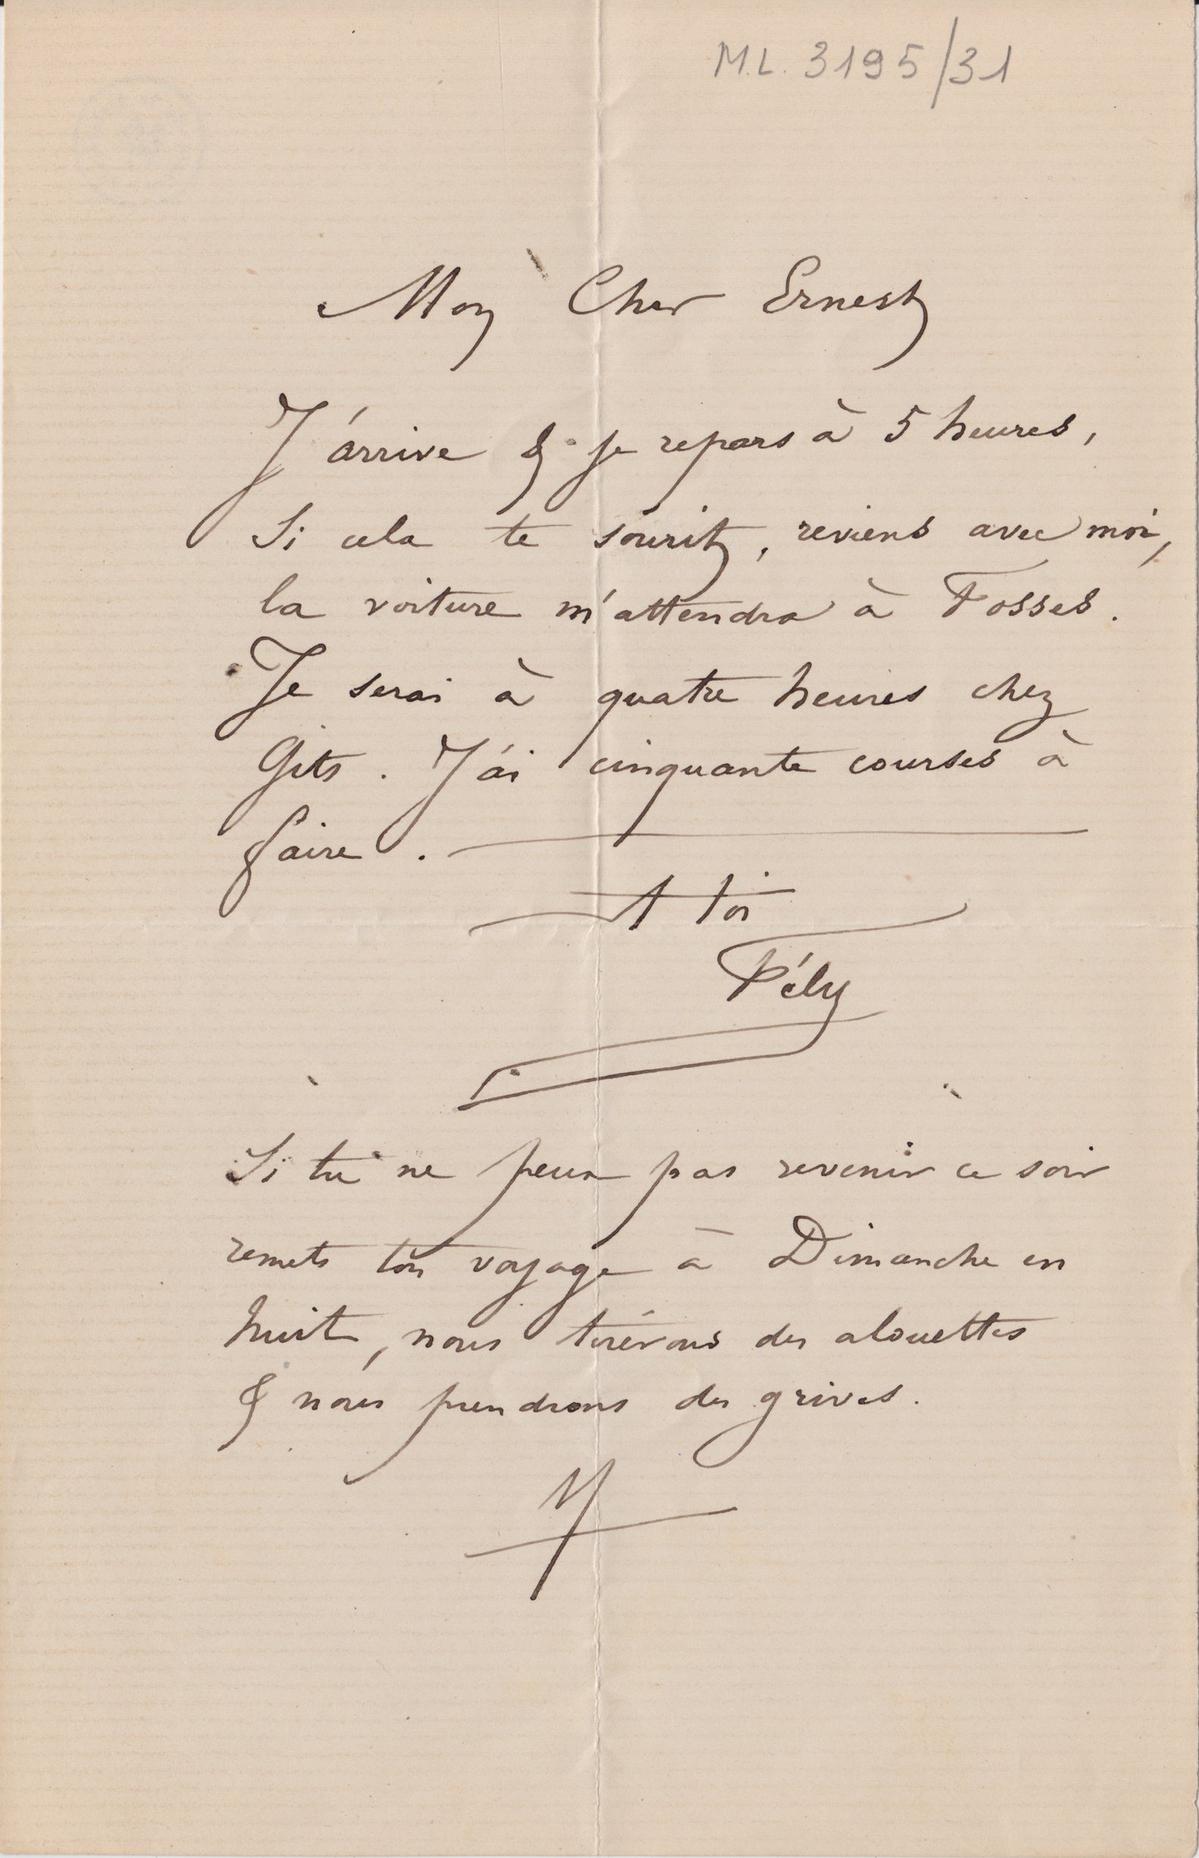 M.L. 3195/31
Mon Cher Ernest
J'arrive & je repars à 5 heures,
Si cela te sourit, reviens avec moi,
la voiture m'attendra à Fosses.
Je serai à quatre heures chez
Gits. J'ai cinquante courses à
faire.
A toi
Fély
Si tu ne peux pas revenir ce soir
remets ton voyage à Dimanche en
huit, nous tirerons des alouettes
& nous prendrons des grives.